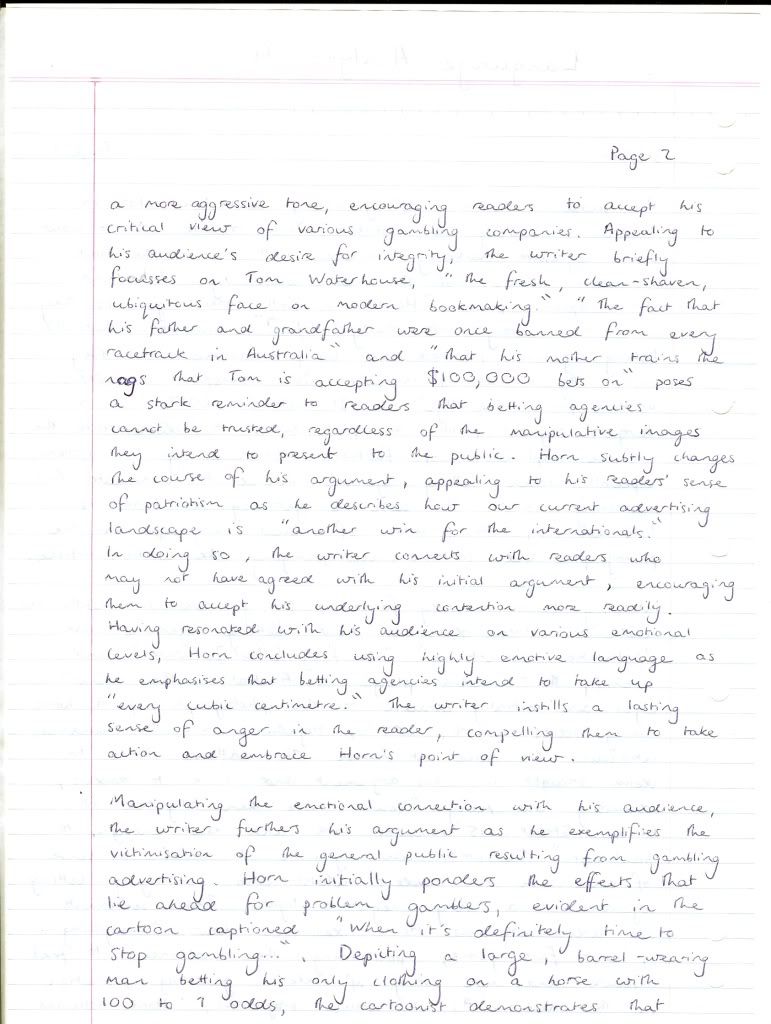 Page 2
a more aggressive tone, encouraging readers to accept his
critical view of various gambling companies. Appealing to
his audience's desire for integrity, the writer briefly
focusses on Tom Waterhouse, "the fresh, clean-shaven,
ubiquitous face on modern bookmaking." "The fact that
his father and grandfather were once banned from every
racetrack in Australia" and "that his mother trains the
nags that Tom is accepting $100,000 bets on" poses
a stark reminder to readers that betting agencies
cannot be trusted, regardless of the manipulative images
they intend to present to the public. Horn subtly changes
the course of his argument, appealing to his readers' sense
of patriotism as he describes how our current advertising
landscape is "another win for the internationals."
In doing so, the writer connects with readers who
may not have agreed with his initial argument, encouraging
them to accept his underlying contention more readily.
Having resonated with his audience on various emotional
levels, Horn concludes using highly emotive language as
he emphasises that betting agencies intend to take up
"every cubic centimetre." The writer instills a lasting
sense of anger in the reader, compelling them to take
action and embrace Horn's point of view.
Manipulating the emotional connection with his audience,
the writer furthers his argument as he exemplifies the
victimisation of the general public resulting from gambling
advertising. Horn initially ponders the effects that
lie ahead for problem gamblers, evident in the
cartoon captioned "When it's definitely time to
stop gambling...". Depicting a large, barrel-wearing
man betting his only clothing on a horse with
100 to 1 odds, the cartoonist demonstrates that